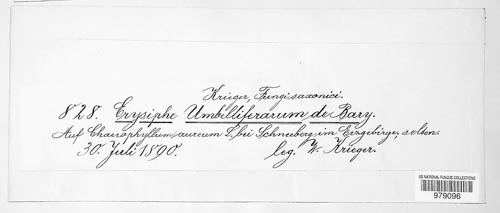 Krieger, Fungi saxonici.
828. Erysiphe Umbelliferarum, de Bary.
Auf Chaerophyllum aureum L., bei Schneeberg im Erzgebirge, selten.
30. Juli 1890. leg. W. Krieger.
US NATIONAL FUNGUS COLLECTIONS
979096